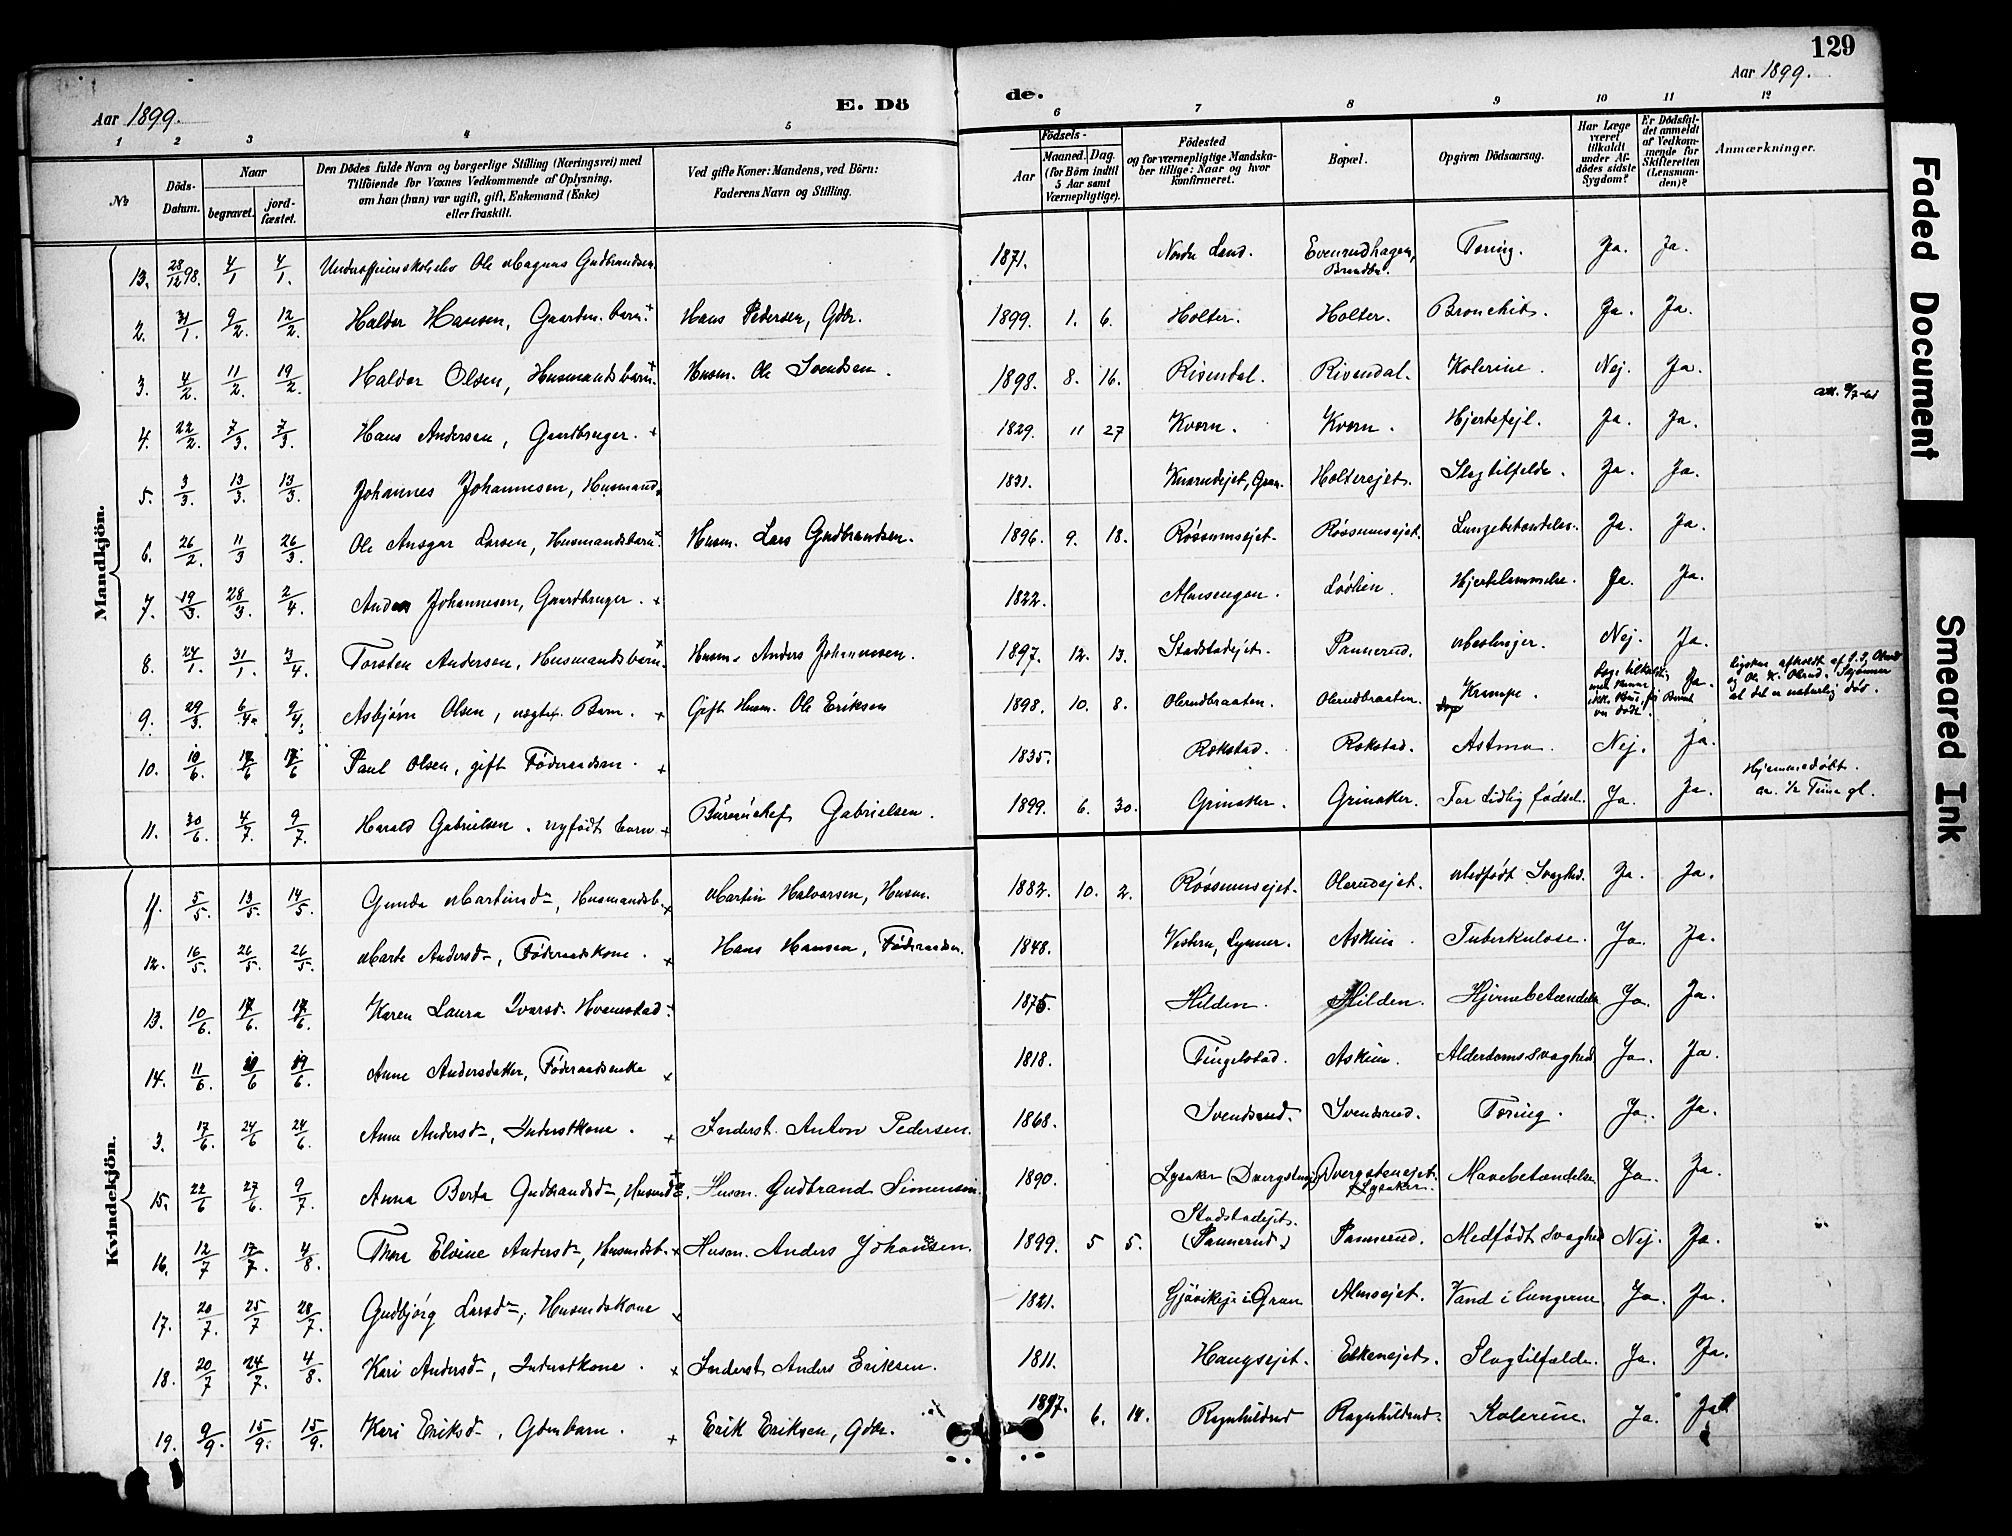 129
Aar 1899.
E. Dö
de.
Aar 1899.
1 2 3 4 5 6 7 8 9 10 11 12
№
Döds-Datum.
Naar
begravet.
jord-fæstet.
Den Dödes fulde Navn og borgerlige Stilling (Næringsvei) med
Tilföiende for Voxnes Vedkommende af Oplysning.
om han (hun) var ugift, gift, Enkemand (Enke)
eller fraskilt.
Ved gifte Koner: Mandens, ved Börn:
Faderens Navn og Stilling.
Födsels-
Aar
Maaned. Dag.
(for Börn indtil
5 Aar samt
Værnepligtige).
Födested
og for værnepligtige Mandska-
ber tillige: Naar og hvor
Konfirmeret.
Bopæl.
Opgiven Dödsaarsag.
Har Læge
været
tilkaldt
under Af-
dödes sidste
Sygdom?
Er Dödsfal-
det anmeldt
af Vedkom-
mende for
Skifteretten
(Lensman-
den)?
Anmærkninger.
Mandkjön.
13. 28/12 98. 4/1 4/1. Underofficerskolelev Ole Magnus Gudbrandsen. 1871. Nordre Land. Evenrudhagen, Brandbu. Tæring. Ja. Ja.
2. 31/1. 9/2. 12/2. Haldor Hansen, Gaardm. barn. + Hans Pedersen, Gdbr. 1899. 1. 6. Holter. Holter. Bronchit. Ja. Ja.
3. 4/2. 11/2. 19/2. Haldor Olsen, Husmandsbarn. + Husm. Ole Svendsen. 1898. 8. 16. Risendal. Risendal. Kolerine. Nej. Ja.
4. 22/2. 7/3. 7/3. Hans Andersen, Gaardbruger. + 1829. 11 27 Kvern. Kvern. Hjertefejl. Ja. Ja.
5. 3/3. 13/3. 13/3. Johannes Johannesen, Husmand. 1831. Knarudejet, Gran. Holterejet. Slagtilfælde. Ja. Ja.
6. 26/2. 11/3 26/3 Ole Ansgar Larsen, Husmandsbarn. + Husm. Lars Gudbrandsen. 1896. 9. 18. Røssumsejet. Røssumsejet. Lungebetændelse. Ja. Ja.
7. 19/3. 28/3. 2/4. Anders Johannesen, Gaardbruger. + 1822. Almsengen. Løøkin. Hjertelammelse. Ja. Ja.
8. 24/1. 31/1. 3/4. Torsten Andersen, Husmandsbarn. + Husm. Anders Johannesen. 1897. 12. 13. Stadstadejet. Pannerud. Meslinger. Nej. Ja.
9. 29/3. 6/4. 9/4. Asbjørn Olsen, uægte Barn. + Gift Husm. Ole Eriksen 1898. 10. 8. Olerudbraaten. Olerudbraaten. Krampe. Læge tilkaldt, men kunne ikke før var død. Ja. Ligskue afholdt af og Ole K. Olerud. Skjønner at det er naturlig død.
10. 10/6. 17/6 17/6 Paul Olsen, gift Føderaadsm. + 1835. Rokstad. Rokstad. Astma. Nej. Ja.
11. 30/6. 4/7. 9/7. Harald Gabrielsen. nyfødt barn + Büreauchef Gabrielsen. 1899. 6. 30. Grinaker. Grinaker. For tidlig fødsel. Ja. Ja. Hjemmedøbt. ca. 1/2 Time gl.
Kvindekjön.
11. 5/5. 13/5. 14/5. Gunda Martinsd., Husmandsb. + Martin Halvorsen, Husm. 1882. 10. 2. Røssumsejet. Olerudejet. Medfødt Svaghed. Ja. Ja.
12. 16/5. 26/5. 26/5. Marte Andersd., Føderaadskone. + Hans Hansen, Føderaadsm. 1848. Vestern, Lynner. Askim. Tuberkulose. Ja. Ja.
13. 10/6. 17/6. 17/6. Karen Laura Ivarsd. Hvamstad. + 1875 Hilden. Hilden. Hjernebetændelse Ja. Ja.
14. 11/6. 18/6 19/6. Anne Andersdatter, Føderaadsenke + 1818. Tingelstad. Askim. Alderdomssvaghed Ja. Ja.
3. 17/6. 24/6 24/6. Anne Andersd., Inderstkone. + Inderst. Anton Pedersen. 1868. Svendsrud. Svendsrud. Tæring. Ja. Ja.
15. 22/6 27/6. 9/7. Anna Berta Gudbrandsd., Husmd. + Husm. Gudbrand Simensen. 1890. Lysaker (Dvergsten) Dvergstenejet. Lysaker. Mavebetændelse Ja. Ja.
16. 12/7 17/7. 4/8. Thora Elvine Andersd., Husmdsb. + Husm. Anders Johansen. 1899. 5 5. Stadstadejet. (Pannerud.) Pannerud. Medfødt svaghed Nej. Ja.
17. 20/7. 25/7 28/7. Gudbjørg Larsd., Husmdskone + 1821. Gjøvikeje i Gran Almsejet. Vand i lungerne. Ja. Ja.
18. 20/7 24/7. 4/8. Kari Andersd., Inderstkone. + Inderst Anders Eriksen. 1811. Haugsejet. Ekernejet. Slagtilfælde. Ja. Ja.
19. 9/9. 15/9. 15/9. Kari Eriksd., Gdmbarn. + Erik Eriksen, Gdbr. 1897. 6. 14. Ragnhildrud Ragnhildrud. Kolerine. Ja. Ja.
Faded Document
Smeared Ink